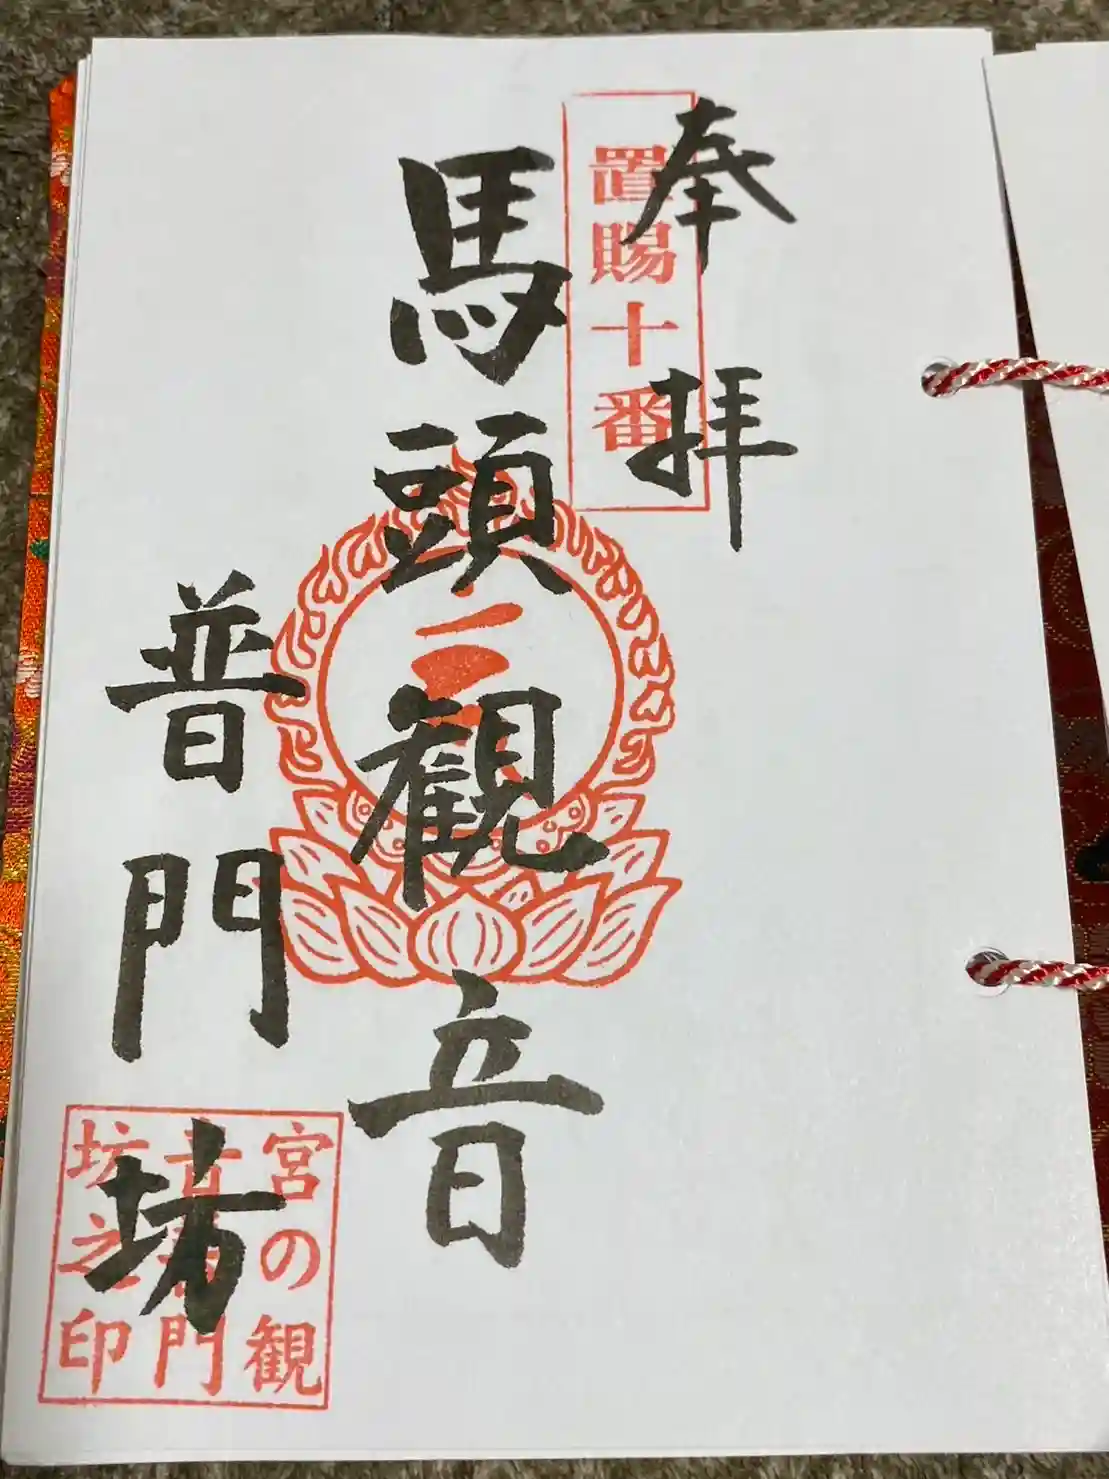 奉拝
置賜十番
馬頭観音
普門坊
宮の観
音普門
坊之印